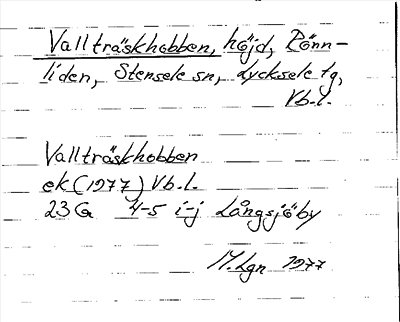 Vallträskhobben, höjd, Rönn-
liden, Stensele sn, Lycksele tg,
Vb.l.
Vallträskhobben
ek (1977) Vb.l.
23G 4-5 i-j Långsjöby
M.Lgn 1977